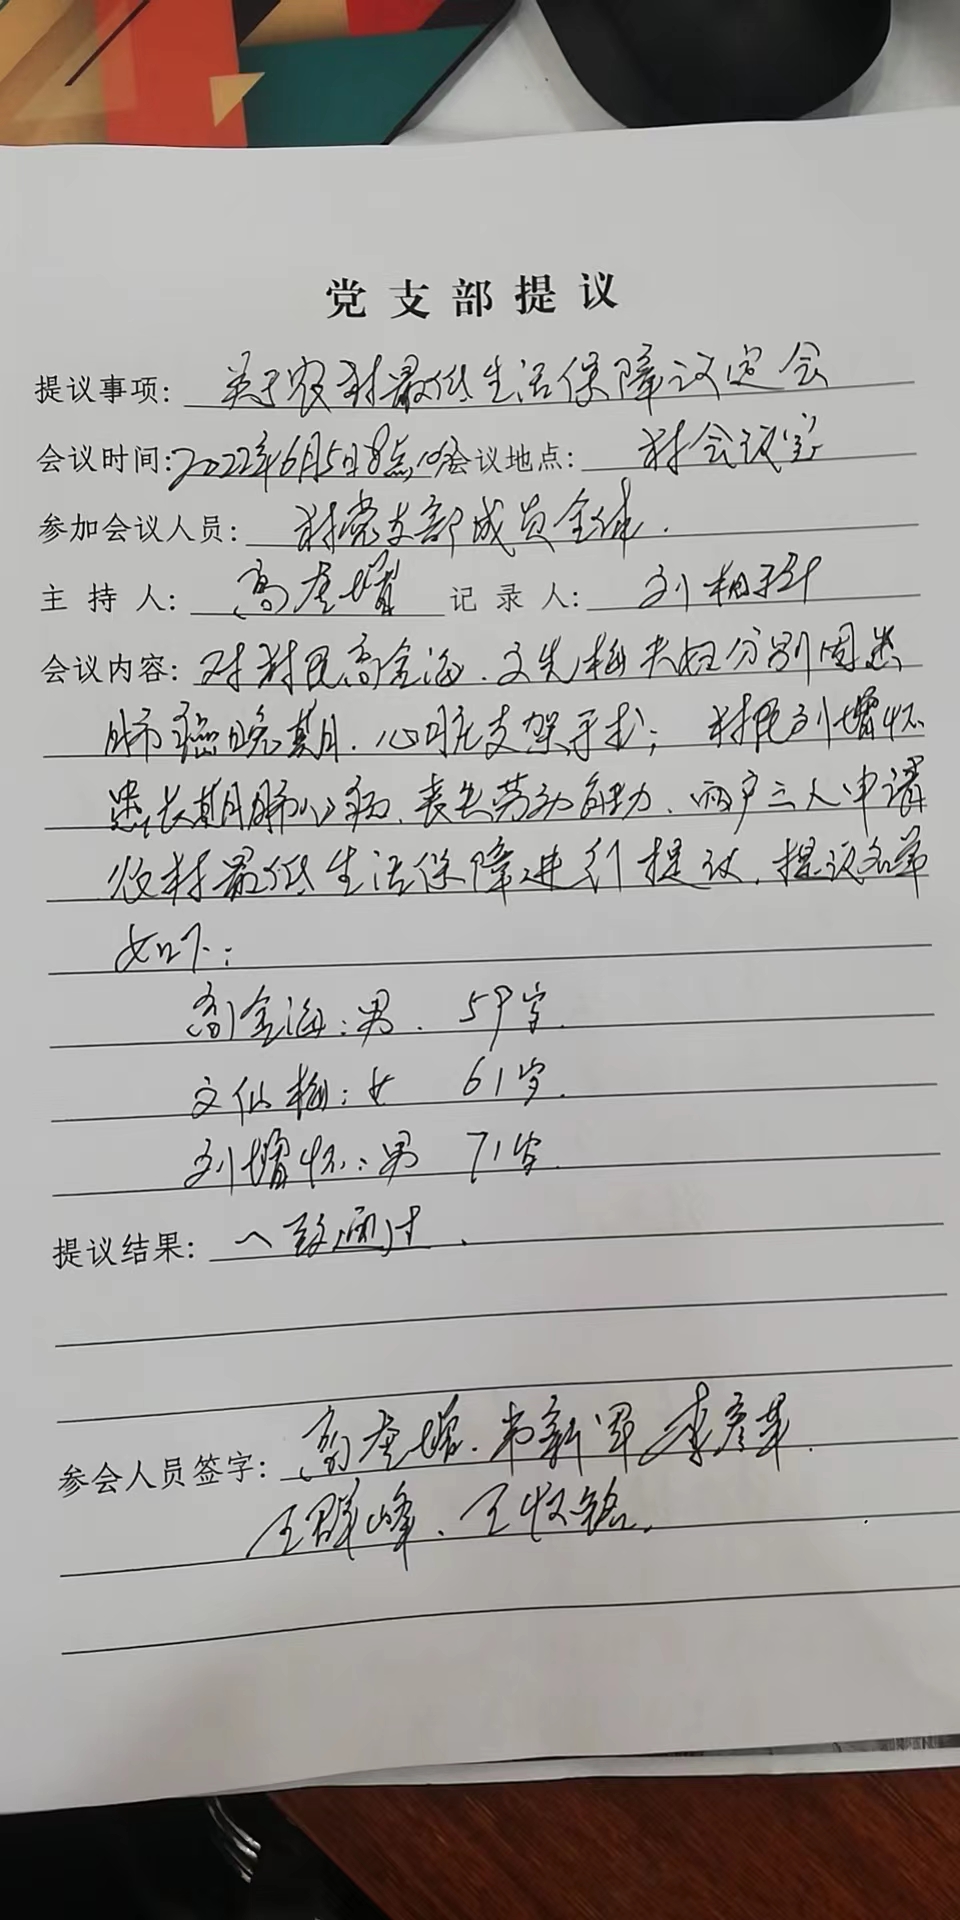 党支部提议
提议事项：关于农村最低生活保障议定会
会议时间：2022年6月5日8点 会议地点：村会议室
参加会议人员：村党支部成员全体．
主持人：高 增 记录人：刘相
会议内容：对村民高金海、文先梅夫妇分别因患
肺癌晚期、心脏支架手术；村民刘增怀
患长期肺心病、丧失劳动能力、两户三人申请
农村最低生活保障进行提议，提议名单
如下：
高金海：男． 59岁．
文仙梅：女 61岁．
刘增怀：男 71岁．
提议结果：一致通过．
参会人员签字：高 增、韦新军、李彦革．
王群峰、王怀铭．